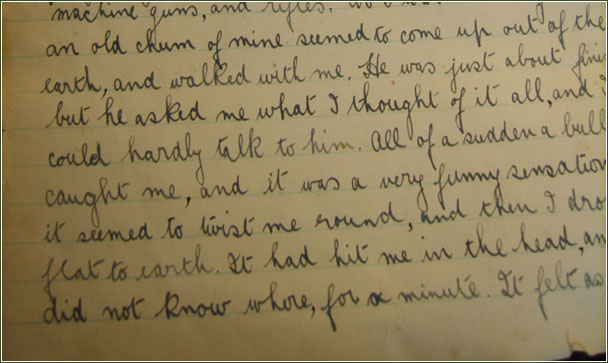 machine guns, and rifles.
an old chum of mine seemed to come up out of the
earth, and walked with me. He was just about fini
but he asked me what I thought of it all, and I
could hardly talk to him. All of a sudden a bull
caught me, and it was a very funny sensation
it seemed to twist me round, and then I dro
flat to earth. It had hit me in the head, an
did not know where, for a minute. It felt as